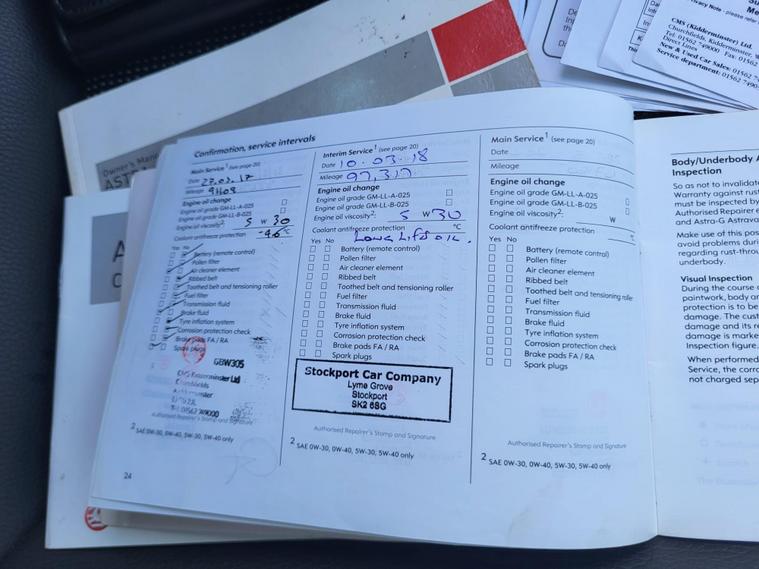 Privacy Note - please refer
CMS (Kidderminster) Ltd.
Churchfields, Kidderminster,
Tel: 01562 749000 Fax: 01562
Direct Lines
New & Used Car Sales: 01562
Service department: 01562
Owner's Manual
ASTRA
Confirmation, service intervals
Main Service¹ (see page 20)
Date 27.03.17
Mileage
Engine oil change
Engine oil grade GM-LL-A-025
Engine oil grade GM-LL-B-025
Engine oil viscosity²: 5 W 30
Coolant antifreeze protection °C
Yes No
Battery (remote control)
Pollen filter
Air cleaner element
Ribbed belt
Toothed belt and tensioning roller
Fuel filter
Transmission fluid
Brake fluid
Tyre inflation system
Corrosion protection check
Brake pads FA / RA
Spark plugs
GBW305
CMS Kidderminster Ltd
Churchfields
Kidderminster
Authorised Repairer's Stamp and Signature
2 SAE 0W-30, 0W-40, 5W-30, 5W-40 only
24
Interim Service¹ (see page 20)
Date 10.03.18
Mileage 97,317
Engine oil change
Engine oil grade GM-LL-A-025
Engine oil grade GM-LL-B-025
Engine oil viscosity²: 5 W 30
Coolant antifreeze protection °C
Long Life oil.
Yes No
Battery (remote control)
Pollen filter
Air cleaner element
Ribbed belt
Toothed belt and tensioning roller
Fuel filter
Transmission fluid
Brake fluid
Tyre inflation system
Corrosion protection check
Brake pads FA / RA
Spark plugs
Stockport Car Company
Lyme Grove
Stockport
SK2 6SG
Authorised Repairer's Stamp and Signature
2 SAE 0W-30, 0W-40, 5W-30, 5W-40 only
Main Service¹ (see page 20)
Date
Mileage
Engine oil change
Engine oil grade GM-LL-A-025
Engine oil grade GM-LL-B-025
Engine oil viscosity²: W
Coolant antifreeze protection °C
Yes No
Battery (remote control)
Pollen filter
Air cleaner element
Ribbed belt
Toothed belt and tensioning roller
Fuel filter
Transmission fluid
Brake fluid
Tyre inflation system
Corrosion protection check
Brake pads FA / RA
Spark plugs
Authorised Repairer's Stamp and Signature
2 SAE 0W-30, 0W-40, 5W-30, 5W-40 only
Body/Underbody
Inspection
So as not to invalidate
Warranty against rust
must be inspected by
Authorised Repairer
and Astra-G Astrava
Make use of this pos
avoid problems durin
regarding rust-throu
underbody.
Visual Inspection
During the course
paintwork, body an
protection is to be
damage. The cust
damage and its re
damage is marke
Inspection figure.
When performed
Service, the corro
not charged sep